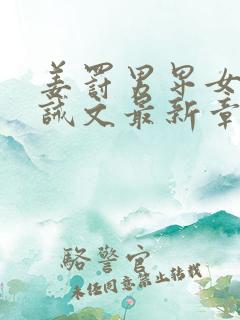 姜罚男女
诫文最新章
駱警官
未经同意禁止转载